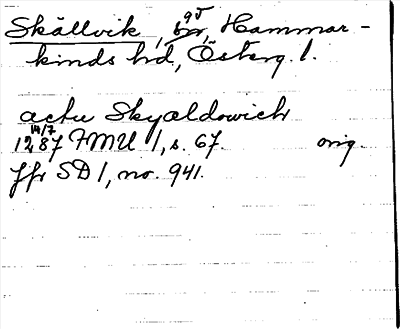 Skällvik, gd, Hammar-
kinds hd, Österg. l.
actu Skyældowich
14/7
1287 FMU 1, s. 67. orig.
Jfr SD 1, no. 941.